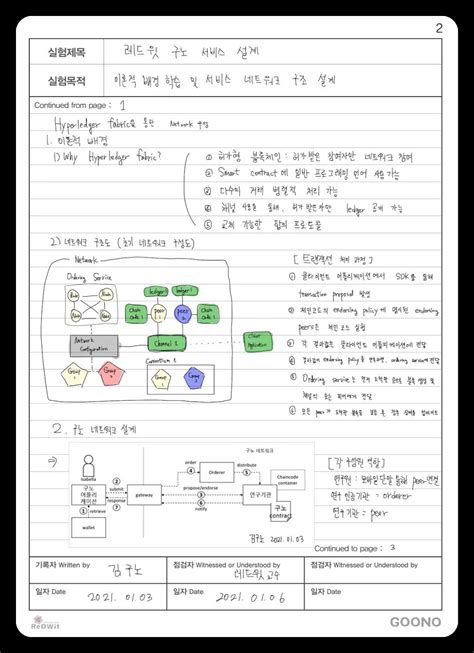 2
실험제목 레드윗 구노 서비스 설계
실험목적 이론적 배경 학습 및 서비스 네트워크 구조 설계
Continued from page : 1
Hyperledger fabric을 통한 Network 구성
1. 이론적 배경
1) Why Hyperledger fabric?
① 허가형 블록체인 : 허가받은 참여자만 네트워크 참여
② Smart contract에 일반 프로그래밍 언어 사용 가능
③ 다수의 거래 병렬적 처리 가능
④ 채널 사용을 통해, 허가받은자만 ledger 공개 가능
⑤ 교체 가능한 합의 프로토콜
2) 네트워크 구조도 (초기 네트워크 구성도)
Network
Ordering Service
Node Node
Node Node
ledger 1 ledger 1
Chain Code 1 peer 1 peer 2 Chain Code 1
Network Configuration
Channel 1
Client Application
Consortium 1
Group Group
Group 1 Group 2
[트랜잭션 처리 과정]
① 클라이언트 어플리케이션에서 SDK를 통해
transaction proposal 발생
② 체인코드의 endorsing policy에 명시된 endorsing
peers은 체인 코드 실행
③ 각 결과값은 클라이언트 어플리케이션에 전달
④ 결과값이 endorsing policy를 만족하면, ordering service에 전달
⑤ Ordering service는
⑥ 모든 peer가
2. 구노 네트워크 설계
구노 네트워크
Isabella
구노 어플리케이션
wallet
1 retrieve
2 submit
8 response
7 return
gateway
order 4
Orderer
distribute 5
3 propose/endorse
6 notify
연구기관
Chaincode container
구노 contract
김구노 2021.01.03
[각 구성원 역할]
연구원 : 모바일 단말 통해 peer 연결
연구 인증기관 = orderer
연구기관 = peer
Continued to page : 3
기록자 Written by 김구노
점검자 Witnessed or Understood by 레드윗 교수
점검자 Witnessed or Understood by
일자 Date 2021. 01. 03
일자 Date 2021. 01. 06
일자 Date
ReDWit
GOONO